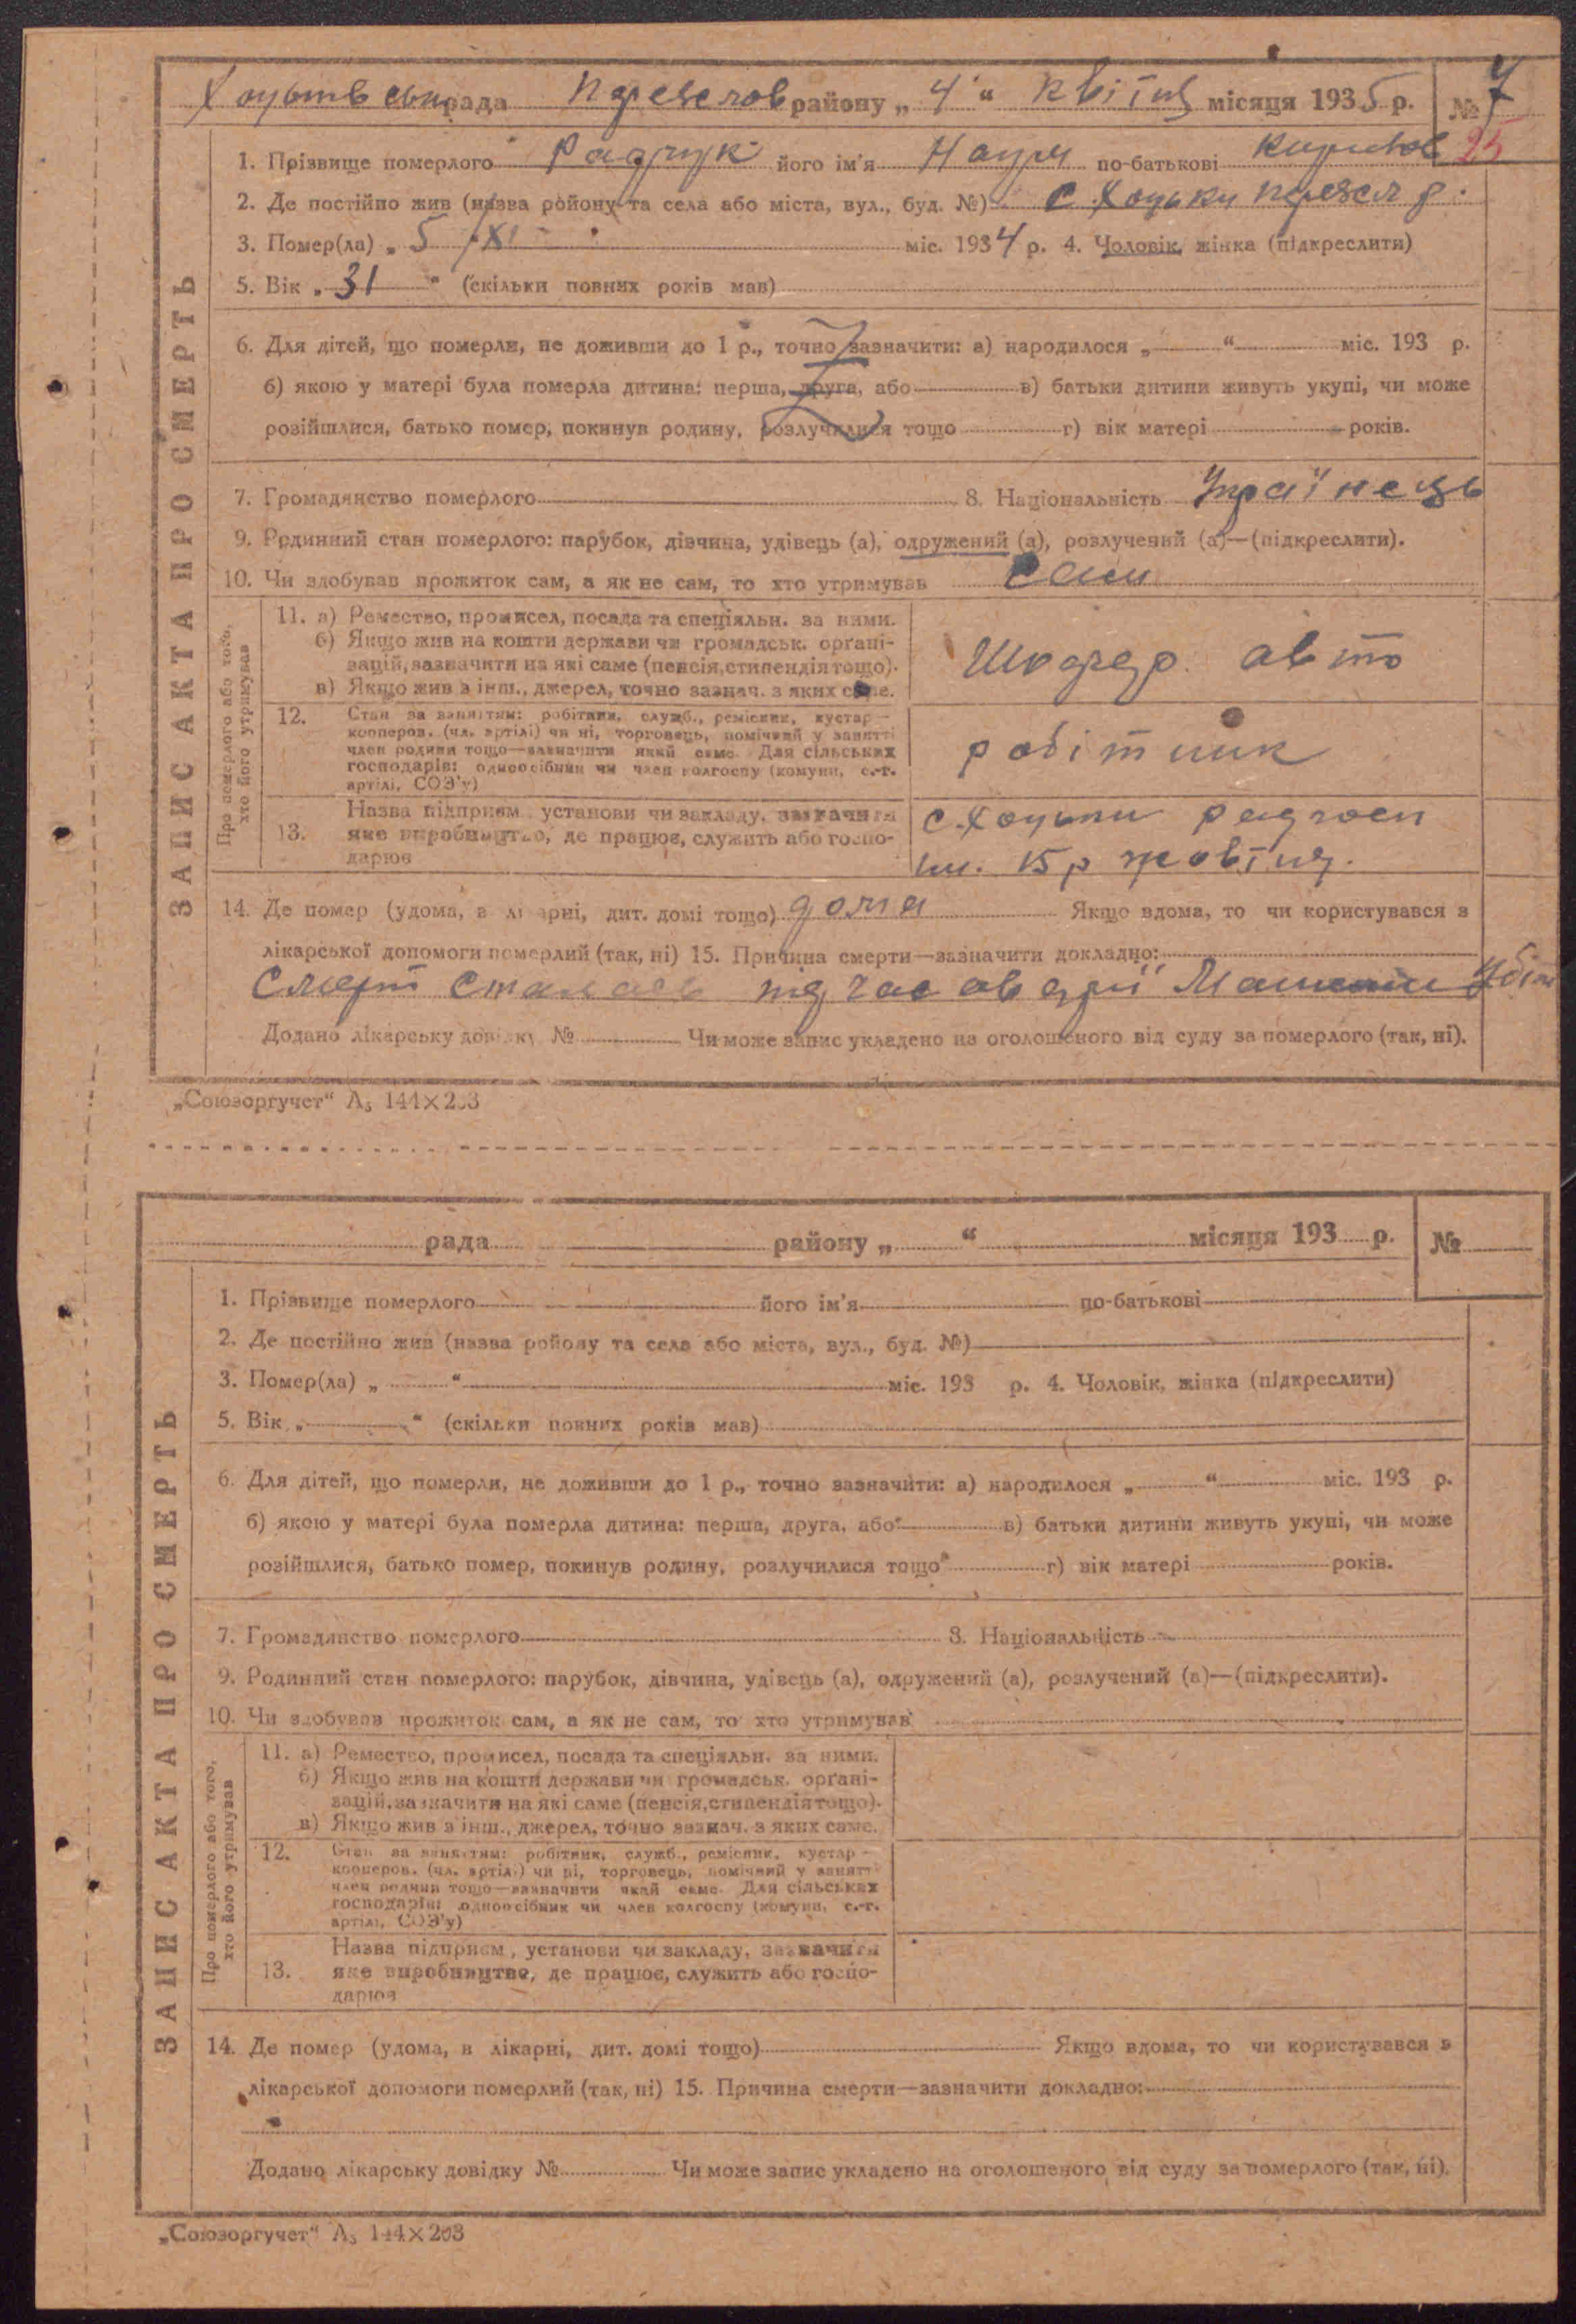 Хоцьків сільрада Переяслов району „ 4 “ Квітня місяця 1935 р. № 7
25
1. Прізвище померлого Радчук його ім'я Наум по-батькові
2. Де постійно жив (назва ройону та села або міста, вул., буд. №) с Хоцьки Переясл р.
3. Помер(ла) „ 5 /XI міс. 1934 р. 4. Чоловік, жінка (підкреслити)
5. Вік „ 31 “ (скільки повних років мав)
6. Для дітей, що померли, не доживши до 1 р., точно зазначити: а) народилося „ “ міс. 193 р.
б) якою у матері була померла дитина: перша, друга, або в) батьки дитини живуть укупі, чи може
розійшлися, батько помер, покинув родину, розлучилися тощо г) вік матері років.
7. Громадянство померлого 8. Національність Українець
9. Родинний стан померлого: парубок, дівчина, удівець (а), одружений (а), розлучений (а)—(підкреслити).
10. Чи здобував прожиток сам, а як не сам, то хто утримував сам
ЗАПИС АКТА ПРО СМЕРТЬ
Про померлого або того,
хто його утримував
11. а) Ремество, промисел, посада та спеціяльн. за ними.
б) Якщо жив на кошти держави чи громадськ. орґані-
зацій, зазначити на які саме (пенсія, стипендія тощо).
в) Якщо жив з інш., джерел, точно зазнач. з яких саме.
Шофер авто
12. Стан за заняттям: робітник, служб., ремісник, кустар—
кооперов. (чл. артілі) чи ні, торговець, помічний у занятті
член родини тощо—зазначити який саме. Для сільських
господарів: одноосібник чи член колгоспу (комуни, с.-г.
артілі, СОЗ'у)
робітник
13. Назва підприєм, установи чи закладу, зазначити
яке виробництво, де працює, служить або госпо-
дарює
с. Хоцьки радгосп
ім. 15 р жовтня.
14. Де помер (удома, в лікарні, дит. домі тощо) дома Якщо вдома, то чи користувався з
лікарської допомоги померлий (так, ні) 15. Причина смерти—зазначити докладно:
Смерт сталась під час аварії Машини
Додано лікарську довідку № Чи може запис укладено на оголошеного від суду за померлого (так, ні).
„Союзоргучет“ А₅ 144×203
рада району „ “ місяця 193 р. №
1. Прізвище померлого його ім'я по-батькові
2. Де постійно жив (назва ройону та села або міста, вул., буд. №)
3. Помер(ла) „ “ міс. 193 р. 4. Чоловік, жінка (підкреслити)
5. Вік „ “ (скільки повних років мав)
6. Для дітей, що померли, не доживши до 1 р., точно зазначити: а) народилося „ “ міс. 193 р.
б) якою у матері була померла дитина: перша, друга, або в) батьки дитини живуть укупі, чи може
розійшлися, батько помер, покинув родину, розлучилися тощо г) вік матері років.
7. Громадянство померлого 8. Національність
9. Родинний стан померлого: парубок, дівчина, удівець (а), одружений (а), розлучений (а)—(підкреслити).
10. Чи здобував прожиток сам, а як не сам, то хто утримував
ЗАПИС АКТА ПРО СМЕРТЬ
Про померлого або того,
хто його утримував
11. а) Ремество, промисел, посада та спеціяльн. за ними.
б) Якщо жив на кошти держави чи громадськ. орґані-
зацій, зазначити на які саме (пенсія, стипендія тощо).
в) Якщо жив з інш., джерел, точно зазнач. з яких саме.
12. Стан за заняттям: робітник, служб., ремісник, кустар—
кооперов. (чл. артілі) чи ні, торговець, помічний у занятті
член родини тощо—зазначити який саме. Для сільських
господарів: одноосібник чи член колгоспу (комуни, с.-г.
артілі, СОЗ'у)
13. Назва підприєм, установи чи закладу, зазначити
яке виробництво, де працює, служить або госпо-
дарює
14. Де помер (удома, в лікарні, дит. домі тощо) Якщо вдома, то чи користувався з
лікарської допомоги померлий (так, ні) 15. Причина смерти—зазначити докладно:
Додано лікарську довідку № Чи може запис укладено на оголошеного від суду за померлого (так, ні).
„Союзоргучет“ А₅ 144×203